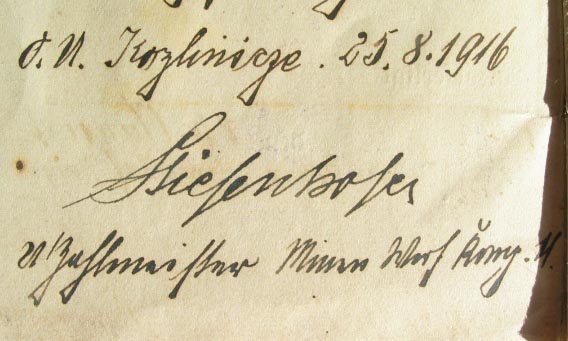 O. U. Kozlinicze. 25.8.1916
Stiefenhofer
U'Zahlmeister Minen Werf Komp.